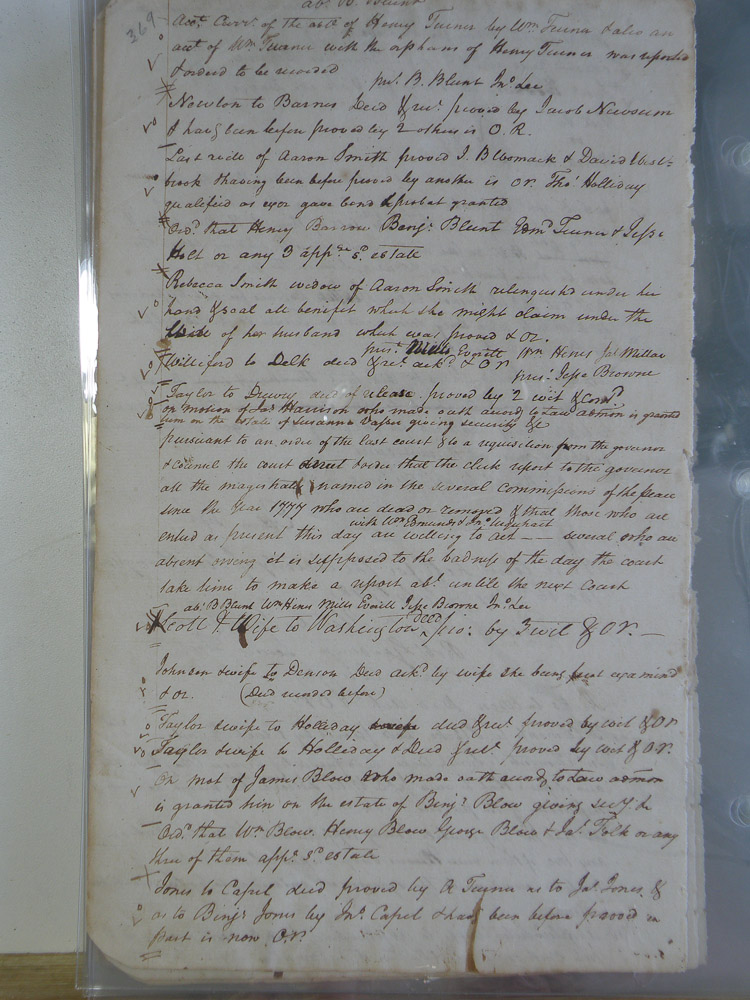 369
abs. B. Blunt
Acct. Curr. of the estt. of Henry Turner by Wm. Turner & also an
acct of Wm Turner with the orphans of Henry Turner was reported
& orderd to be recorded
prst. B. Blunt Jno. Lee
Newton to Barnes Deed & rect. proved by Jacob Newsum
& havg been before proved by 2 others is O. R.
Last will of Aaron Smith proved J. Blbomack & David West=
brook & having been before proved by another is Or. Thos. Holliday
qualified as exor gave bond & probat granted
Ord. that Henry Barrow Benj. Blunt Edmd Turner & Jesse
Holt or any 3 appre. sd. estate
Rebecca Smith widow of Aaron Smith relinquishd under her
hand & seal all benefit which she might claim under the
Will of her husband which was proved & Or.
prst. Mills Everitt Wm Hines
Williford to Delk deed & rect. ackd. & Or
prst. Jesse Browne
Taylor to Drewry deed of release proved by 2 wit &
on motion of Jas Harrison who made oath accordg to Law admon is granted
him on the estate of Susanna Vasser giving security &c
pursuant to an order of the last court & to a requisition from the governor
& council the court direct & order that the clerk report to the governor
all the magistrates named in the several commissions of the peace
since the year 1777 who are dead or removed & that those who are
with Wm Edmunds & Jno. Urquhart
enterd as present this day are willing to act —— several who are
absent owing it is supposed to the badness of the day the court
take time to make a report abt. untill the next Court
abs. B Blunt Wm Hines Mills Everitt Jesse Browne Jno. Lee
Scott & Wife to Washington deed pro. by 3 wit & Or. —
Johnson & wife to Denson Deed ackd. by wife she being first examind
& or. (Deed recorded before)
Taylor & wife to Holliday deed & rect. proved by wit & Or
Taylor & wife to Holliday & Deed & rect. proved by wit & Or.
On mot of James Blow who made oath accordg to Law admon
is granted him on the estate of Benj. Blow giving secy. &c
Ord. that Wm Blow. Henry Blow George Blow & Jas. Folk or any
three of them appre. sd. estate
Jones to Capel deed proved by A Turner as to Jas. Jones &
as to Benj. Jones by Jno. Capel & havg been before proved in
part is now Or.